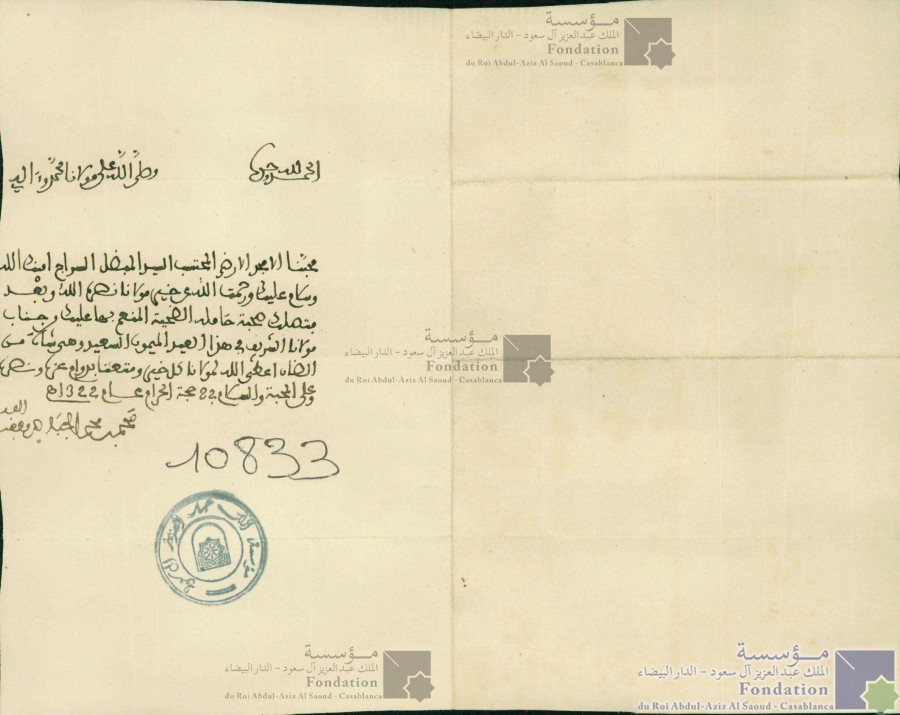 مؤسسة
الملك عبد العزيز آل سعود - الدار البيضاء
Fondation
du Roi Abdul-Aziz Al Saoud - Casablanca
الحمد لله وحده
وصلى الله على مولانا محمد وءاله
محبنا الامجد الارضى المحتسب السيد المفضل السراج امنك الله
وسلام عليك ورحمت الله عن خير مولانا نصره الله وبعد
فتصلك صحبة حامله الضحية المنعم بها عليك من جناب
مولانا الشريف في هذا العيد الميمون السعيد وهي شاة من
الضان اعطى الله لمولانا كل خير ومتعنا بدوام عزه ونصره
وعلى المحبة والسلام في 22 حجة الحرام عام 1322
محمد
10833
مؤسسة
الملك عبد العزيز آل سعود - الدار البيضاء
Fondation
du Roi Abdul-Aziz Al Saoud - Casablanca
مؤسسة الملك عبد العزيز
مؤسسة
الملك عبد العزيز آل سعود - الدار البيضاء
Fondation
du Roi Abdul-Aziz Al Saoud - Casablanca
مؤسسة
الملك عبد العزيز آل سعود - الدار البيضاء
Fondation
du Roi Abdul-Aziz Al Saoud - Casablanca